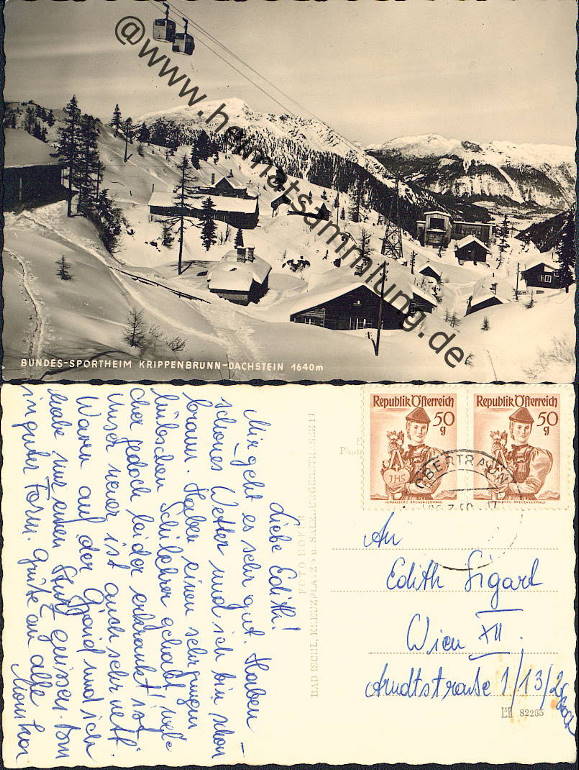 @www.heimatsammlung.de
BUNDES-SPORTHEIM KRIPPENBRUNN-DACHSTEIN 1640m
Liebe Edith!
Mir geht es sehr gut. Haben
schönes Wetter und ich bin schon
braun. Haben einen sehr jungen
hübschen Skilehrer gehabt,
der jedoch leider erkrankt ist.
Unser neuer ist auch sehr nett.
Waren auf der Gjaid und ich
habe nur einen Sturz gerissen. Bin
in guter Form. Grüße an alle von
Monika
FOTO HOFER
BAD ISCHL, KREUZPLATZ
Republik Österreich
50
g
Republik Österreich
50
g
OBERTRAUN
An
Edith Sigart
Wien XII.
Arndtstraße 1/13/2
82285